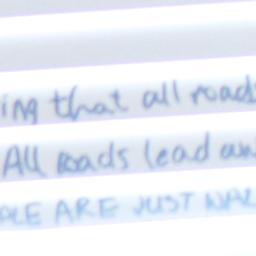 ing that all roads
All roads lead
PLE ARE JUST